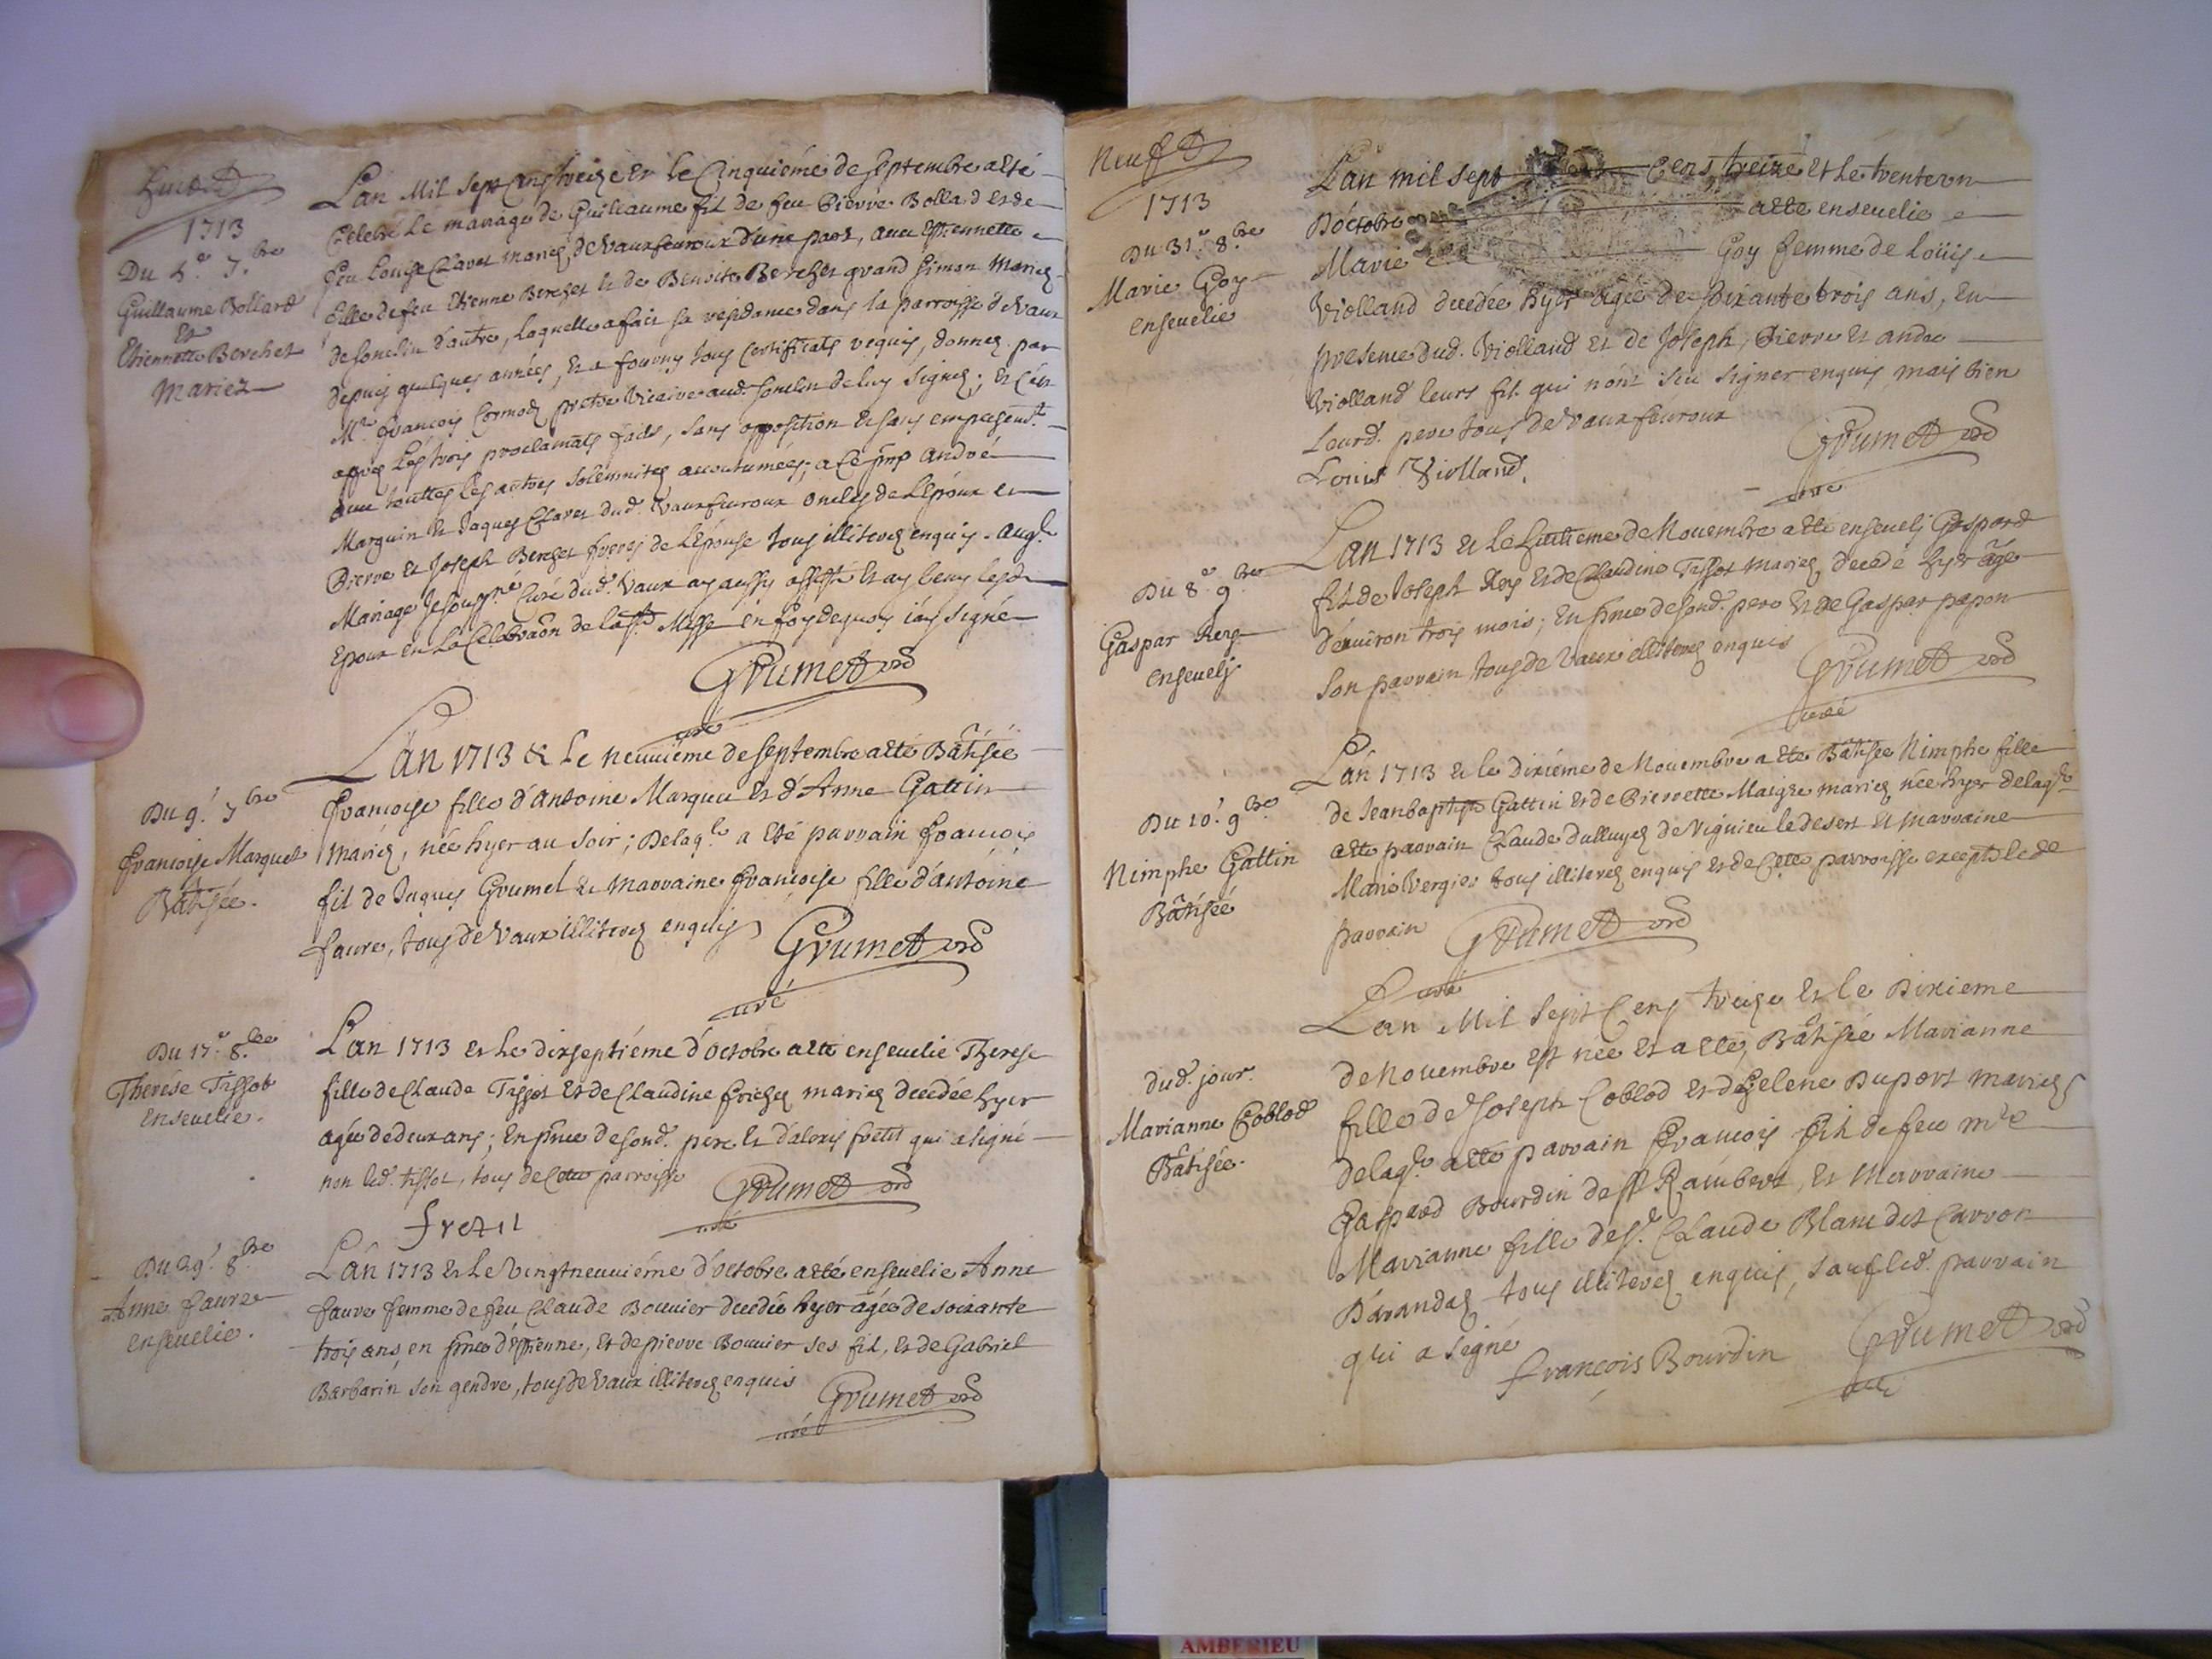 huict
1713
Du 5.e 7.bre
Guillaume Bollard
Et
Etiennette Berchet
Mariez
Lan Mil Sept Cens treize Et le Cinquiéme de Septembre a esté
Celebré Le mariage de Guillaume fil de feu Pierre Bollard et de
feu Louise Clavet mariez, de Vauxfeuroux d'une part, avec Etiennette
fille de feu Etienne Berchet et de Benoite Berchet grand Simon Mariez
de Soncelin d'autre, Laquelle a fait sa residance dans la parroisse de Vaux
depuis quelques années, Et a fourny tous Certificats requis, donnez par
M.re françois Cormoz pretre Vicaire aud. Soncelin de luy Signez; Et C'est
apres Les trois proclamats faits, sans opposition Et sans empeschem.t
avec touttes Les autres Solemnitez accoutumées; a Ce pnt André
Marguin et Jaques Clavet dud. Vauxfeuroux oncles de L'Epoux et
Pierre Et Joseph Berchet freres de L'Epouse tous illiterez enquis. Auql.
Mariage Je Soussné Curé dud. Vaux ay aussy assisté Et ay beny lesd.
Epoux en La Celebraon de la Ste Messe en foy dequoy iay Signé
Grumet
curé
Du 9.e 7.bre
Francoise Marquet
Bâtisée.
Lan 1713 & Le neuuiéme de Septembre a esté Bâtisée
francoise fille d'Antoine Marquet Et d'Anne Gattin
Mariez, née hyer au Soir; Delaq.le a Eté parrain francois
fil de Jaques Grumet Et marraine francoise fille d'antoine
faure, tous de Vaux illiterez enquis
Grumet
curé
Du 17.e 8.bre
Therése Tissot
Enseuelie.
Lan 1713 et Le dixseptiéme d'Octobre a eté enseuelie Therese
fille de Claude Tissot Et de Claudine frichez mariez decedée hyer
agée de deux ans; En pnce de sond. pere Et d'alexis fretil qui a signé
non led. tissot, tous de Cette parroisse
Grumet
curé
fretil
Du 29.e 8.bre
Anne faure
enseuelie.
Lan 1713 Et Le Vingtneuuiéme d'octobre a eté enseuelie Anne
faure femme de feu Claude Bouuier decedée hyer âgée de soixante
trois ans, en pnce d'Etienne, Et de pierre Bouuier ses fil, Et de Gabriel
Barbarin son gendre, tous de Vaux illiterez enquis
Grumet
curé
Neuf
1713
Du 31.e 8.bre
Marie Goy
enseuelie
Lan mil sept Cens treize Et Le trenteun
D'octobre a eté enseuelie
Marie Goy femme de Loüis
Violland decedée hyer agée de soixante trois ans, En
presence dud. Violland Et de Joseph, Pierre Et andre
Violland leurs fil. qui n'ont sçeu signer enquis mais bien
Leurd. pere tous de Vauxfeuroux
Grumet
Louis Violland.
curé
Du 8.e 9.bre
Gaspar Rey
enseuely
Lan 1713 Et Le huitieme de Nouembre a eté enseuely Gaspard
fil de Joseph Rey Et de Claudine Tissot mariez decedé hyer âgé
d'enuiron trois mois; En pnce de sond. pere Et de Gaspar papon
son parrain tous de Vaux illiterez enquis
Grumet
curé
Du 10.e 9.bre
Nimphe Gattin
Bâtisée
Lan 1713 Et le Dixiéme de Nouembre a ete Bâtisée Nimphe fille
de Jeanbaptiste Gattin Et de Pierrette Maigre mariez née hyer delaq.le
a ete parrain Claude dalluyez de Vignieu le desert Et marraine
Marie Vergier tous illiterez enquis et de Cette parroisse excepté led.
parrain
Grumet
curé
dud. jour.
Marianne Coblod
Bâtisée.
Lan Mil Sept Cens treize Et le Dixieme
de Nouembre est née Et a eté Bâtisée Marianne
fille de Joseph Coblod Et d'helene Duport mariez
delaq.le a eté parrain francois fil de feu m.re
Gaspard Bourdin de St Rambert, Et Marraine
Marianne fille de s.r Claude Blanc dit Carron
D'arandaz tous illiterez enquis, sauf led. parrain
qui a signé
francois Bourdin
Grumet
curé
AMBERIEU